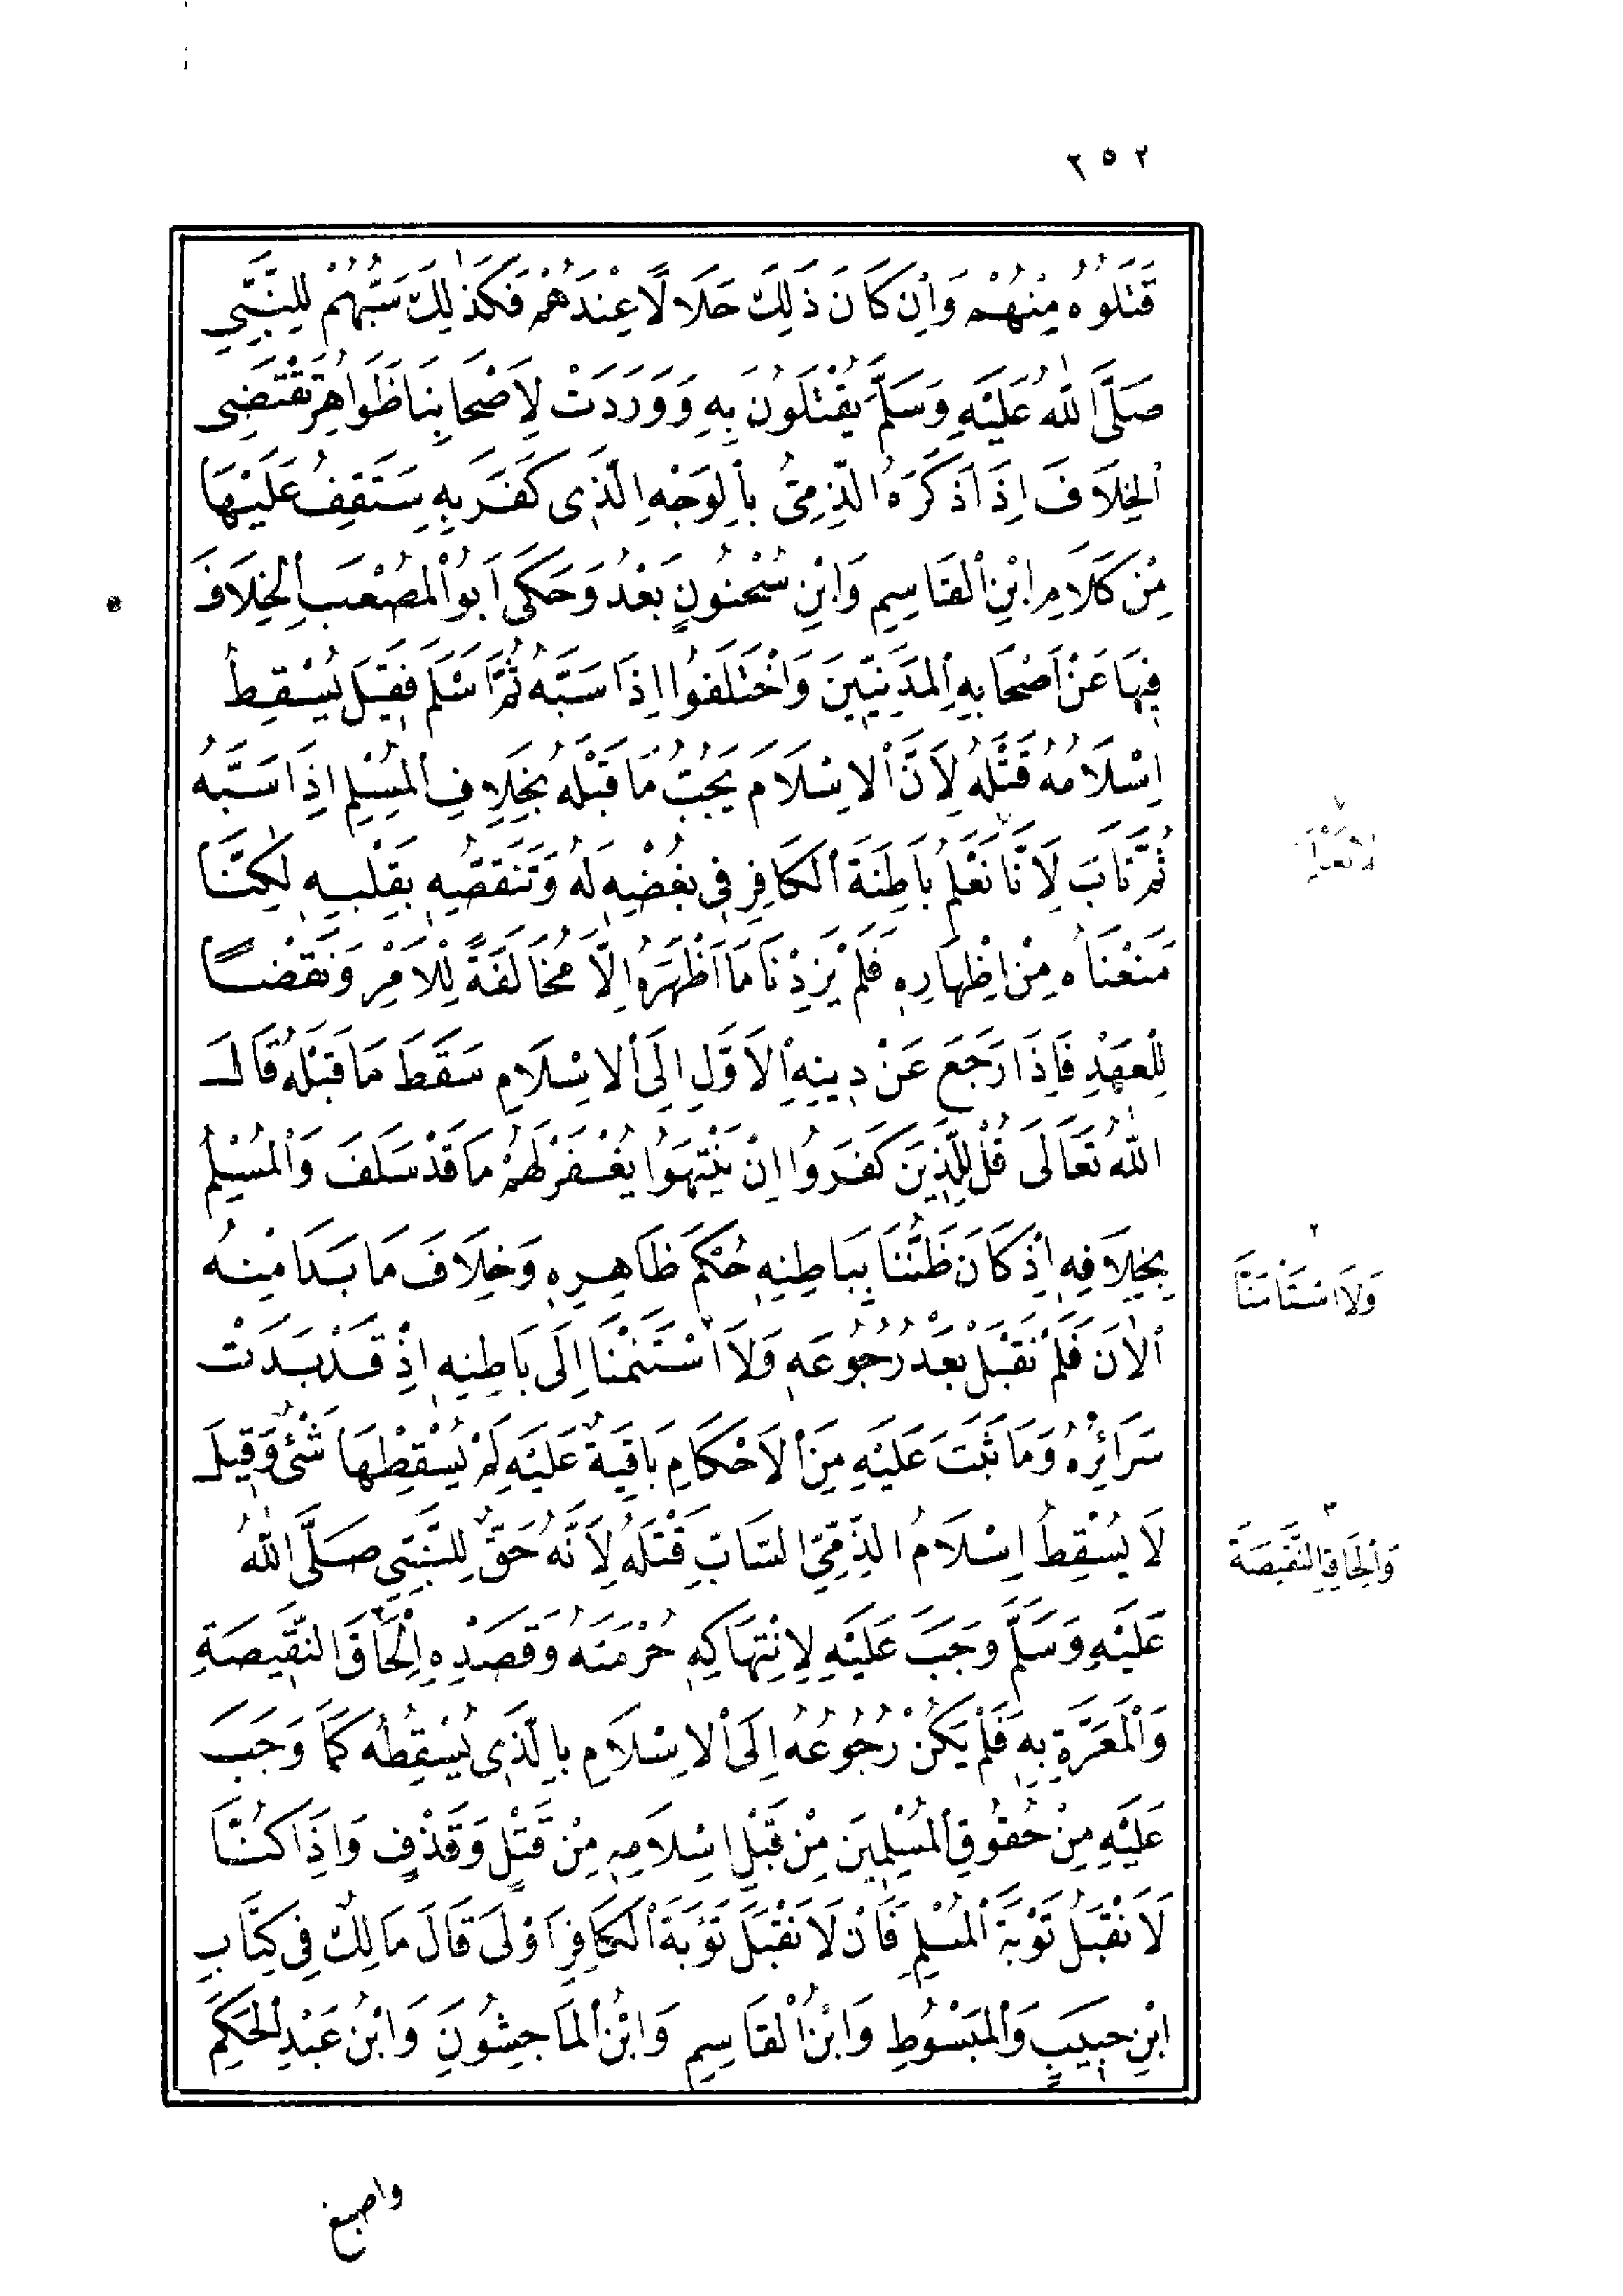 ٢٥٢
قَتَلُوهُ مِنْهُمْ وَاِنْ كَانَ ذٰلِكَ حَلَالًا عِنْدَهُمْ فَكَذٰلِكَ سَبُّهُمْ لِلنَّبِيِّ
صَلَّى اللّٰهُ عَلَيْهِ وَسَلَّمَ يُقْتَلُونَ بِهِ وَوَرَدَتْ لِاَصْحَابِنَا ظَوَاهِرُ تَقْتَضِى
الْخِلَافَ اِذَا ذَكَرَهُ الذِّمِّىُّ بِالْوَجْهِ الَّذِى كَفَرَ بِهِ سَتَقِفُ عَلَيْهَا
مِنْ كَلَامِ ابْنِ الْقَاسِمِ وَابْنِ سُحْنُونٍ بَعْدُ وَحَكَى اَبُو الْمُصْعَبِ الْخِلَافَ
فِيهَا عَنْ اَصْحَابِهِ الْمَدَنِيِّينَ وَاخْتَلَفُوا اِذَا سَبَّهُ ثُمَّ اَسْلَمَ فَقِيلَ يُسْقِطُ
اِسْلَامُهُ قَتْلَهُ لِاَنَّ الْاِسْلَامَ يَجُبُّ مَا قَبْلَهُ بِخِلَافِ الْمُسْلِمِ اِذَا سَبَّهُ
ثُمَّ تَابَ لِاَنَّا نَعْلَمُ بَاطِنَةَ الْكَافِرِ فِى بُغْضِهِ لَهُ وَتَنَقُّصِهِ بِقَلْبِهِ لٰكِنَّا
مَنَعْنَاهُ مِنْ اِظْهَارِهِ فَلَمْ يَزِدْنَا مَا اَظْهَرَهُ اِلَّا مُخَالَفَةً لِلْاَمْرِ وَنَقْضًا
لِلْعَهْدِ فَاِذَا رَجَعَ عَنْ دِينِهِ الْاَوَّلِ اِلَى الْاِسْلَامِ سَقَطَ مَا قَبْلَهُ قَالَ
اللّٰهُ تَعَالَى قُلْ لِلَّذِينَ كَفَرُوا اِنْ يَنْتَهُوا يُغْفَرْ لَهُمْ مَا قَدْ سَلَفَ وَالْمُسْلِمُ
بِخِلَافِهِ اِذْ كَانَ ظَنُّنَا بِبَاطِنِهِ حُكْمَ ظَاهِرِهِ وَخِلَافَ مَا بَدَا مِنْهُ
الْاٰنَ فَلَمْ نَقْبَلْ بَعْدُ رُجُوعَهُ وَلَا اسْتَنَمْنَا اِلَى بَاطِنِهِ اِذْ قَدْ بَدَتْ
سَرَائِرُهُ وَمَا ثَبَتَ عَلَيْهِ مِنَ الْاَحْكَامِ بَاقِيَةٌ عَلَيْهِ لَمْ يُسْقِطْهَا شَىْءٌ وَقِيلَ
لَا يُسْقِطُ اِسْلَامُ الذِّمِّيِّ السَّابِّ قَتْلَهُ لِاَنَّهُ حَقٌّ لِلنَّبِيِّ صَلَّى اللّٰهُ
عَلَيْهِ وَسَلَّمَ وَجَبَ عَلَيْهِ لِانْتِهَاكِهِ حُرْمَتَهُ وَقَصْدِهِ اِلْحَاقَ النَّقِيصَةِ
وَالْمَعَرَّةِ بِهِ فَلَمْ يَكُنْ رُجُوعُهُ اِلَى الْاِسْلَامِ بِالَّذِى يُسْقِطُهُ كَمَا وَجَبَ
عَلَيْهِ مِنْ حُقُوقِ الْمُسْلِمِينَ مِنْ قَبْلِ اِسْلَامِهِ مِنْ قَتْلٍ وَقَذْفٍ وَاِذَا كُنَّا
لَا نَقْبَلُ تَوْبَةَ الْمُسْلِمِ فَاَنْ لَا نَقْبَلَ تَوْبَةَ الْكَافِرِ اَوْلَى قَالَ مَالِكٌ فِى كِتَابِ
ابْنِ حَبِيبٍ وَالْمَبْسُوطِ وَابْنُ الْقَاسِمِ وَابْنُ الْمَاجِشُونِ وَابْنُ عَبْدِ الْحَكَمِ
٢
وَلَا اسْتَأْمَنَّا
٣
وَاِلْحَاقِ النَّقِيصَةِ
واصبغ